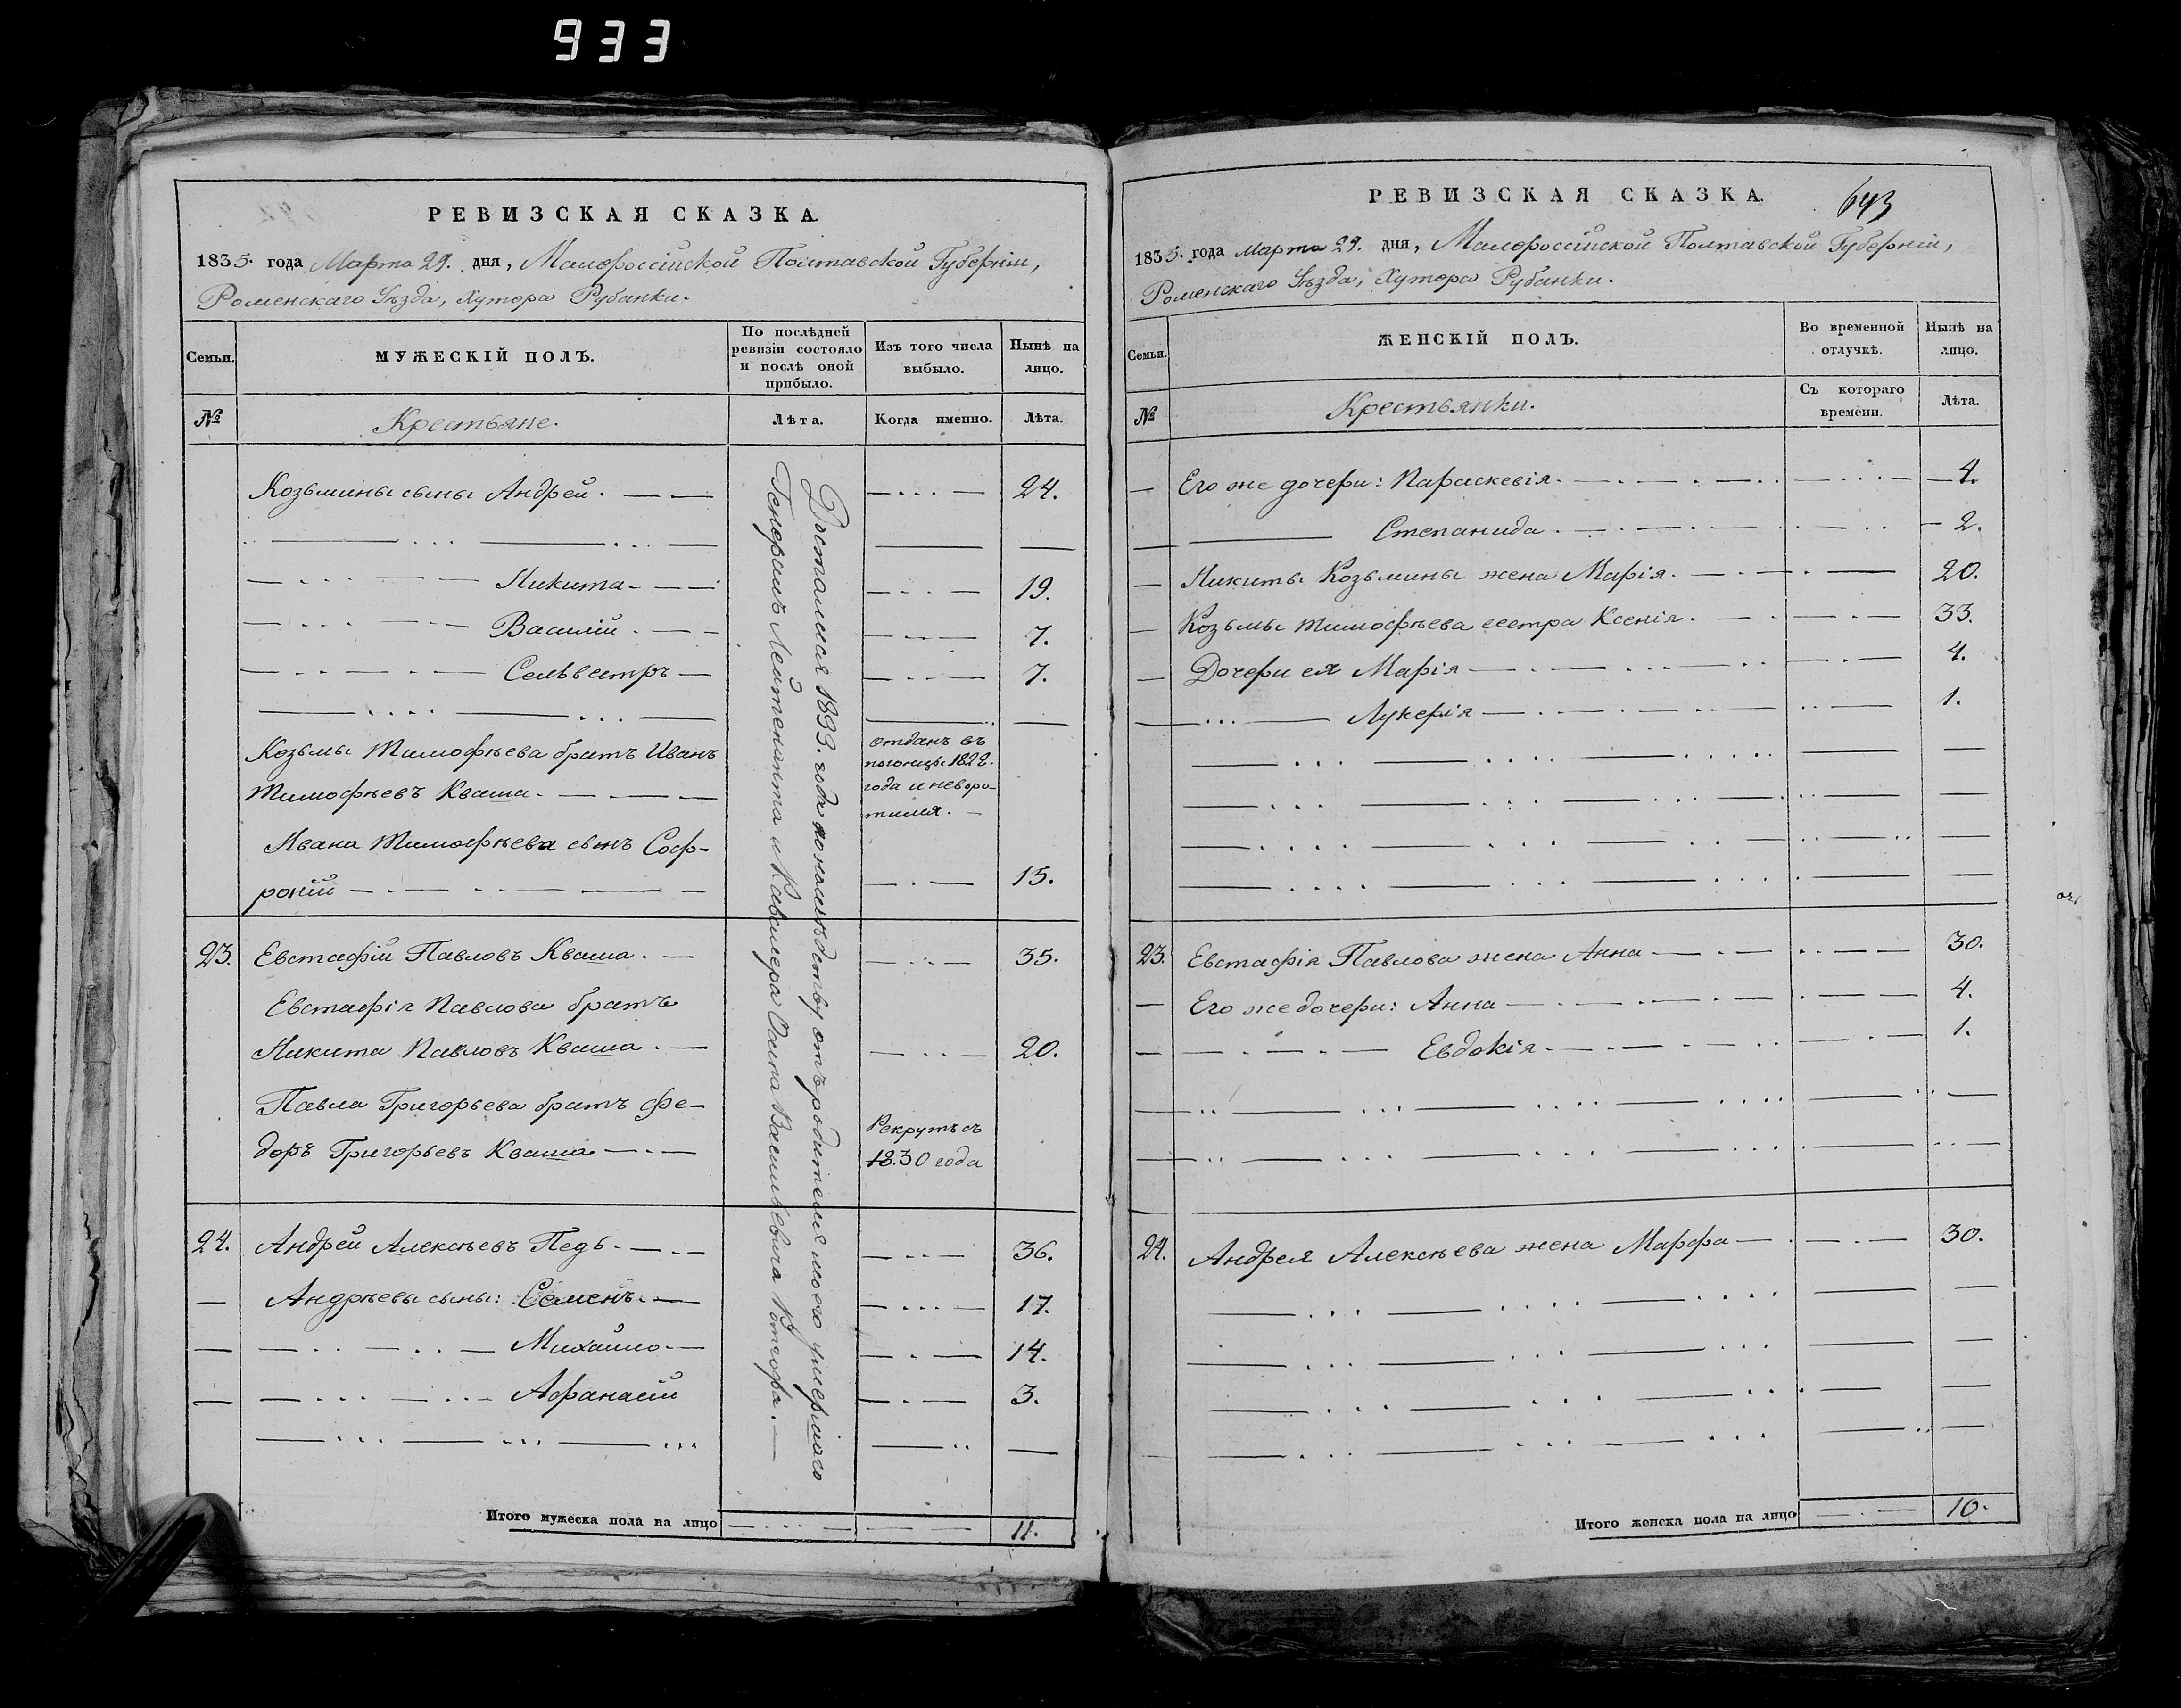 933
РЕВИЗСКАЯ СКАЗКА.
1835. года Марта 29. дня, Малороссійской Полтавской Губерніи,
Роменскаго Уѣзда, Хутора Рубанки.
Семьи.
МУЖЕСКІЙ ПОЛЪ.
По послѣдней
ревизіи состояло
и послѣ оной
прибыло.
Изъ того числа
выбыло.
Нынѣ на
лицо.
№
Крестьяне.
Лѣта.
Когда именно.
Лѣта.
Козьмины сыны Андрей. 24.
Никита 19.
Василій 7.
Сельвестръ 7.
Козьмы Тимофѣева братъ Иванъ
Тимофѣевъ Кваша.
отданъ въ
погонцы 1822.
года и невора-
тился.
Ивана Тимофѣева сынъ Соф-
роній 15.
23. Евстафій Павловъ Кваша. 35.
Евстафія Павлова братъ
Никита Павловъ Кваша. 20.
Павла Григорьева братъ Фе-
доръ Григорьевъ Кваша
Рекрутъ съ
1830 года
24. Андрей Алексѣевъ Педь. 36.
Андрѣевы сыны: Семенъ. 17.
Михайло 14.
Афанасій 3.
Досталися 1833. года по наслѣдству отъ родителя моего умершаго
Генералъ Лейтенанта и Кавалера Осипа Васильевича
Итого мужеска пола на лицо 11.
РЕВИЗСКАЯ СКАЗКА.
643
1835. года Марта 29. дня, Малороссійской Полтавской Губерніи,
Роменскаго Уѣзда, Хутора Рубанки.
Семьи.
ЖЕНСКІЙ ПОЛЪ.
Во временной
отлучкѣ.
Нынѣ на
лицо.
№
Крестьянки.
Съ котораго
времени.
Лѣта.
Его же дочери: Параскевія. 4.
Степанида 2.
Никиты Козьмины жена Марія. 20.
Козьмы Тимофѣева сестра Ксенія. 33.
Дочери ея Марія 4.
Лукерія 1.
23. Евстафія Павлова жена Анна 30.
Его же дочери: Анна 4.
Евдокія. 1.
24. Андрея Алексѣева жена Марфа 30.
Итого женска пола на лицо 10.